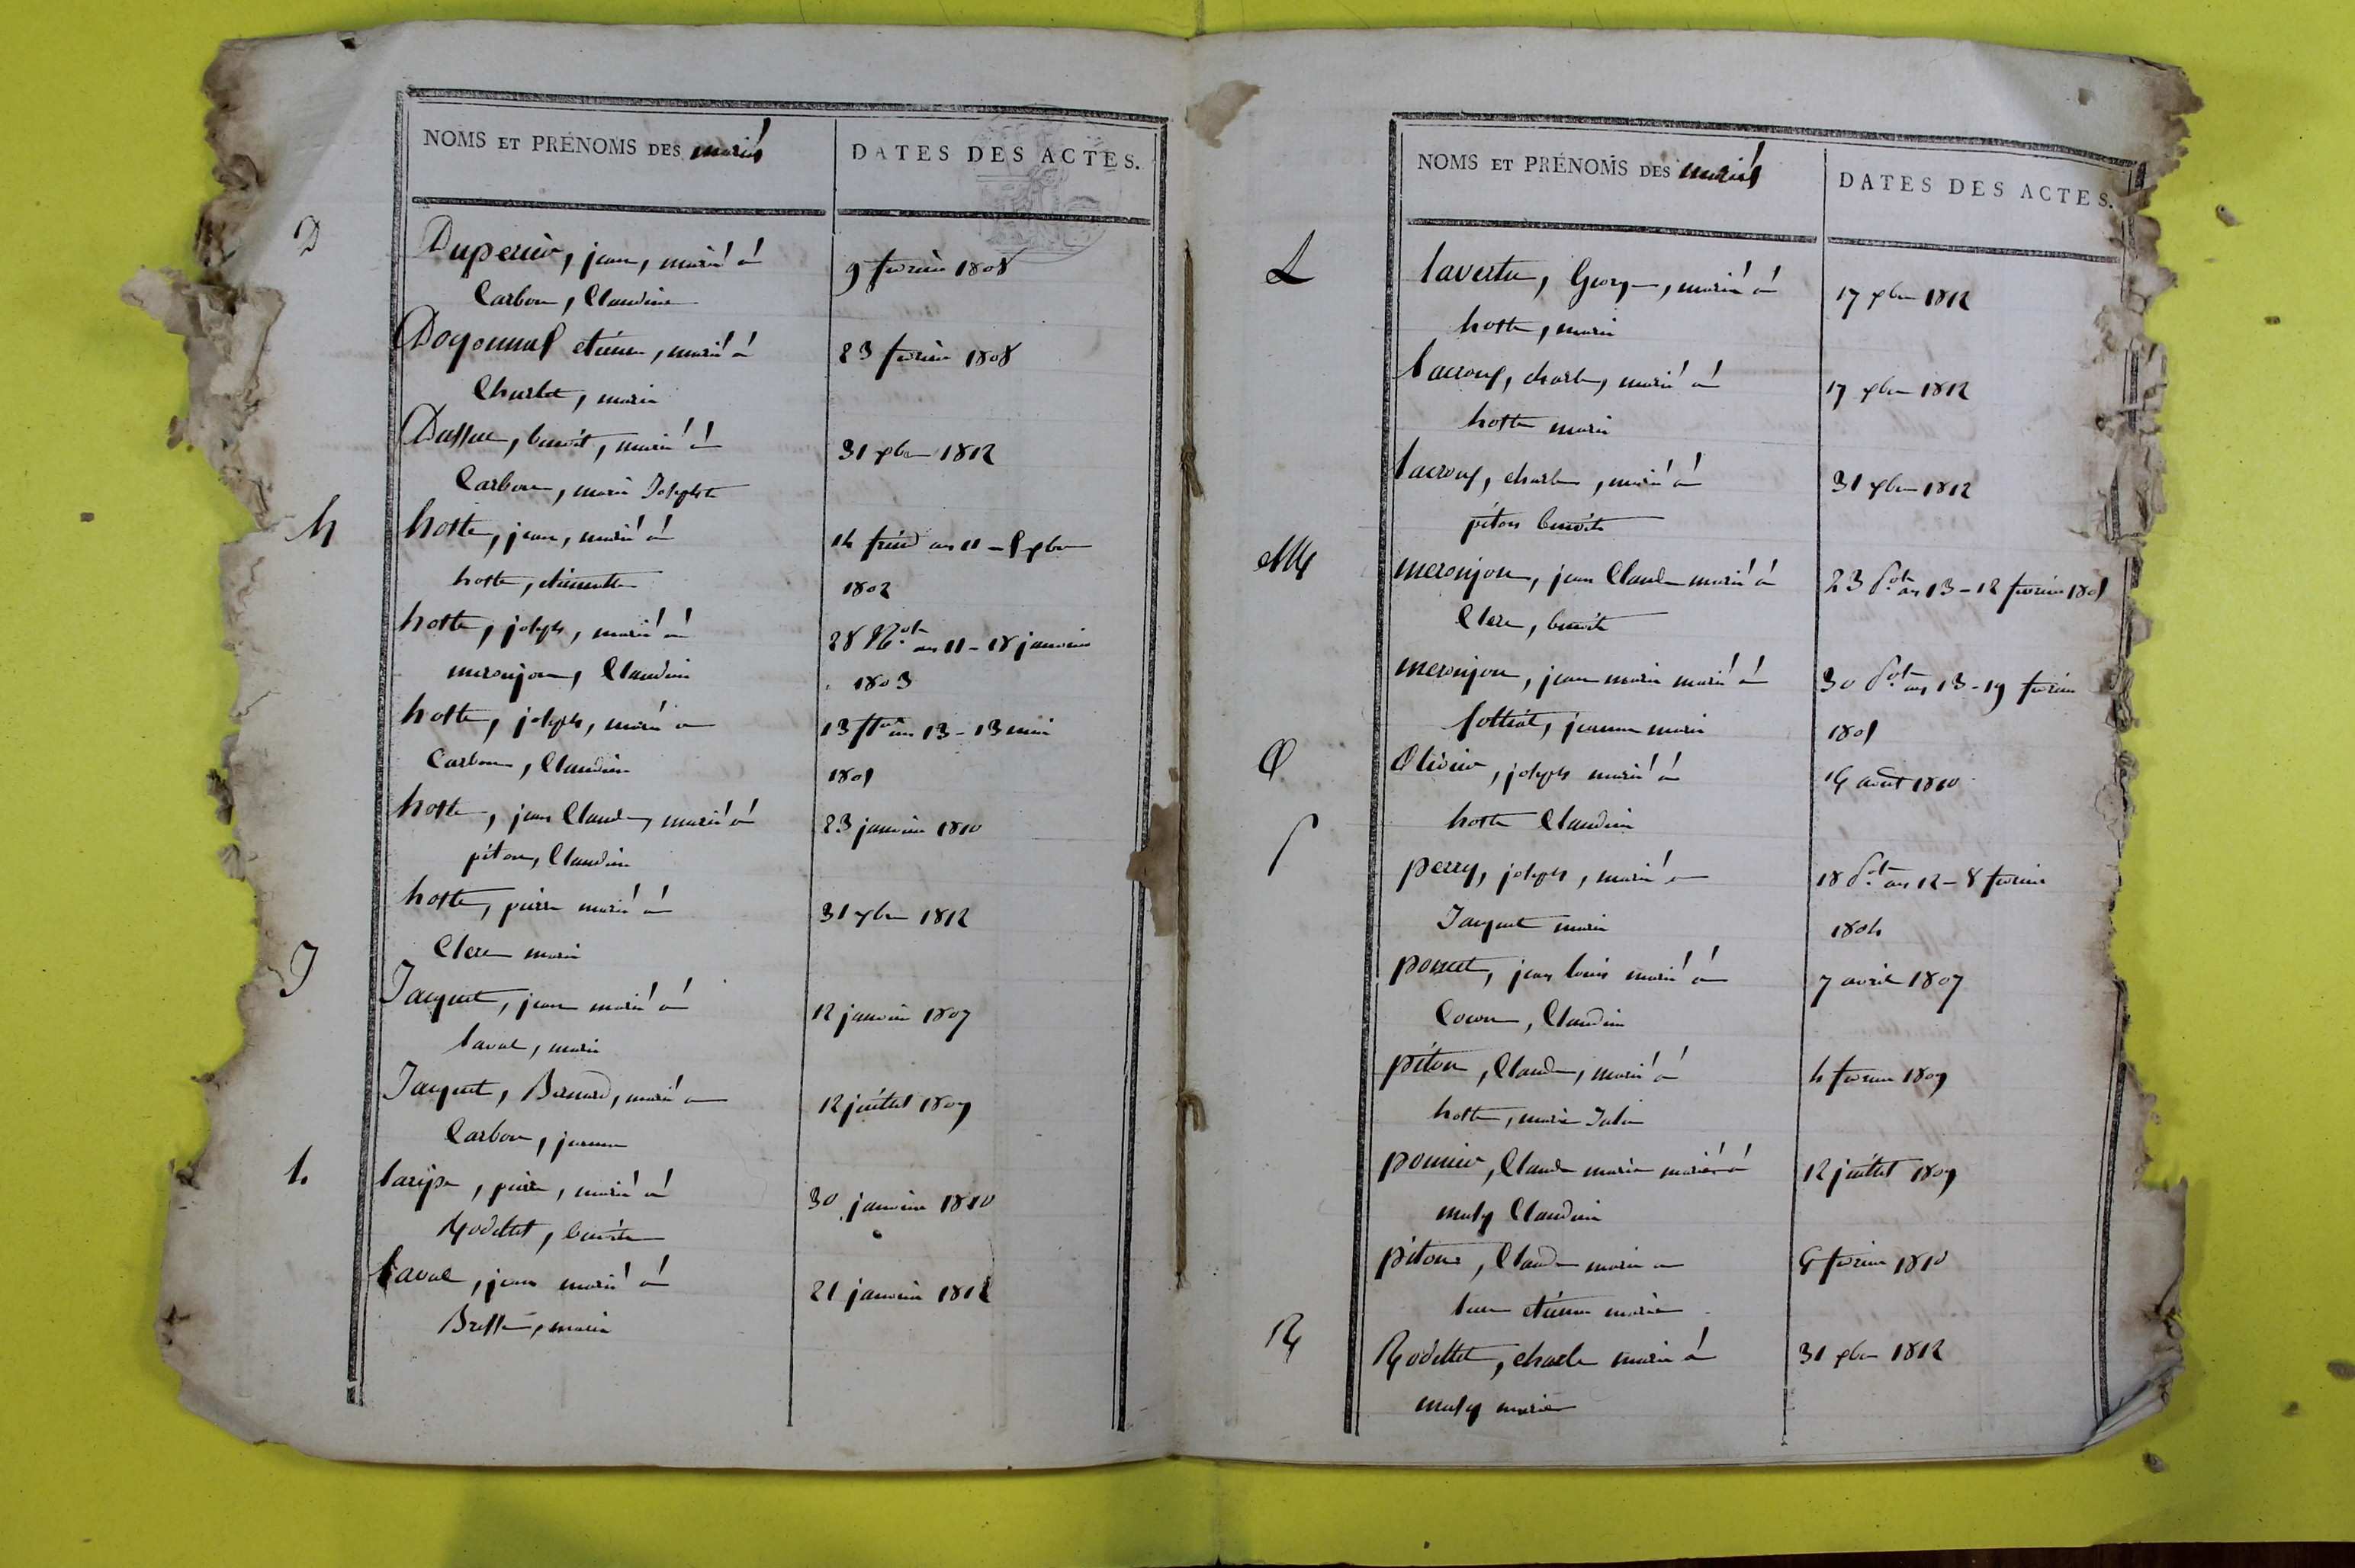 NOMS ET PRÉNOMS DES mariés
DATES DES ACTES.
D
Duperier, jean, marié à
9 février 1808
Carbon, Claudine
étienne, marié à
23 février 1808
Charlet, marie
benoit, marié à
31 xbre 1812
Carbon, marie Josephte
h
hoste, jean, marié à
14 frim an 11 - 5 xbre
hoste, étiennette
1802
hoste, joseph, marié à
28 an 11 - 18 janvier
meronjon, Claudine
1803
hoste, joseph, marié à
an 13 - 13 mai
Carbon, Claudine
1805
hoste, jean Claude, marié à
23 janvier 1810
piton, Claudine
hoste, pierre marié à
31 xbre 1812
Clere marie
J
Jaquet, jean marié à
12 janvier 1807
laval, marie
Jaquet, Bernard, marié à
12 juillet 1809
Carbon, jeanne
L
pierre, marié à
30 janvier 1810
Rodettet, benoite
laval, jean marié à
21 janvier 1812
marie
NOMS ET PRÉNOMS DES mariés
DATES DES ACTES.
L
lavertu, George, marié à
17 xbre 1812
hoste, marie
lacrouf, charle, marié à
17 xbre 1812
hoste marie
lacrouf, charle, marié à
31 xbre 1812
piton benoite
M
meronjon, jean Claude marié à
23 an 13 - 12 février 1805
Clere, benoite
meronjon, jean marie marié à
30 an 13 - 19 février
jeanne marie
1805
O
Olivier, joseph marié à
août 1810
hoste Claudine
P
perry, joseph, marié à
18 an 12 - 8 février
Jaquet marie
1804
poncet, jean louis marié à
7 avril 1807
Claudine
piton, Claude, marié à
4 février 1809
hoste, marie
Claude marie marié à
12 juillet 1809
Claudine
piton, Claude marié à
6 février 1810
étienne marie
R
Rodettet, charle marié à
31 xbre 1812
marie